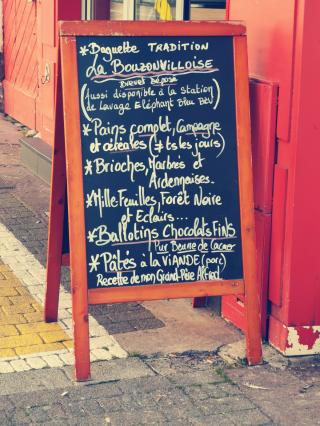 *Baguette TRADITION
La BOUZONVILLOISE
Brevet Déposé
(Aussi disponible à la station
de Lavage Eléphant Bleu BZV)
*Pains complet, Campagne
et céréales (7 ts les jours)
*Brioches, Marbrés et
Ardennaises.
*Mille Feuilles, Forêt Noire
et Eclairs...
*Ballotins Chocolats FINS
Pur Beurre de Cacao
*Pâtés à la VIANDE (porc)
Recette de mon Grand-Père Alfred